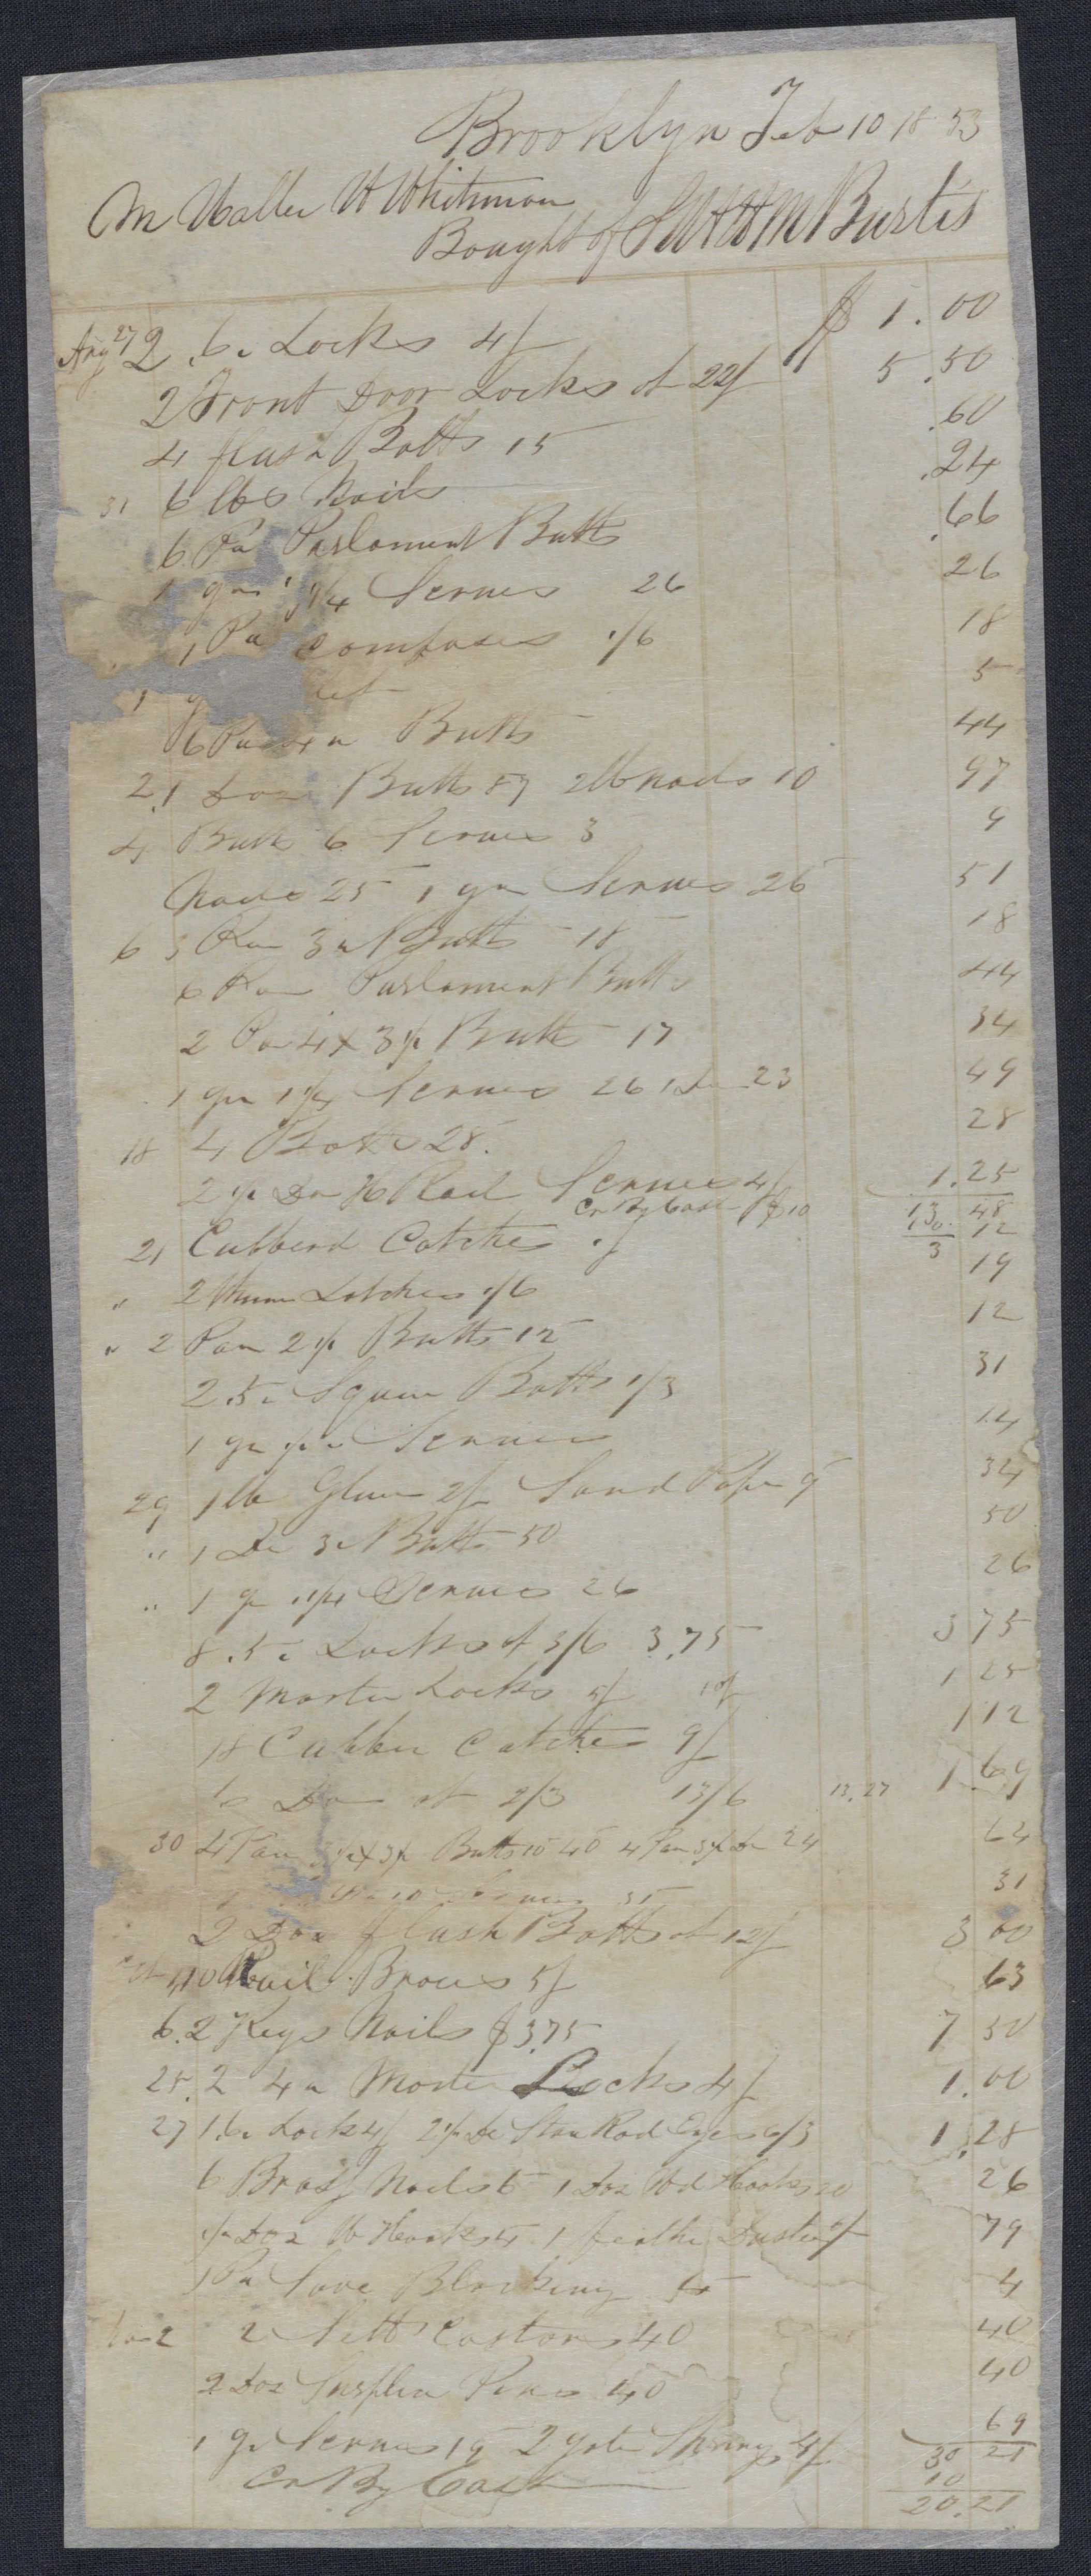 Brooklyn Feb 10 1853
M Walter W Whitman
Bought of S W & H M Burtis
Aug 27 2 6 in Locks 4/ $ 1.00
2 Front Door Locks at 22/ 5.50
4 flush Bolts 15 .60
31 6 lbs Nails .24
6 Pa Parlament Butts .66
1 gro 3/4 Screws 26 26
1 Pa Compases 1/6 18
1 5
6 Pa Butts 44
2 1 Doz Butts 87 2 lb nails 10 97
4 Butts 6 Screws 3 9
Nails 25 1 gro Screws 26 51
6 3 Pair 3 in Butts 18 18
6 Pair Parlament Butts 44
2 Pair 4 x 3 1/2 Butts 17 34
1 gro 1 1/4 Screws 26 1 Do 23 49
18 4 Bolts 28. 28
2 1/2 Doz Rail Screws 4/ 1.25
Cr By Cash $10 13 48
10
21 Cubberd Catches 1/ 3 12
" 2 Thum Latches 1/6 19
" 2 Pair 2 1/2 Butts 12 12
2 5 in Square Bolts 1/3 31
1 gro Screws 14
29 1 lb Glue 2/ Sand Paper 9 34
" 1 Do 3 in Butts 50 50
" 1 gro 1 1/4 Screws 26 26
8 5 in Locks at 3/6 3.75 3 75
2 Morter Locks 5/ 10/ 1 25
18 Cubber Catche 9/ 1 12
6 Do at 2/3 13/6 13.27 1.69
30 4 Pair Butts 10 40 4 Pair Do 24 64
10 Screws 31
2 Doz flush Bolts at 12/ 3 00
Oct 10 Rail Braces 5/ 63
6. 2 Kegs Nails $3.75 7 50
25. 2 4 in Morter Locks 4/ 1.00
27 1 6 in Lock 4/ 2 1/2 Do Stair Rod Eyes 6/3 1.28
6 Brass Nails 6 1 Doz Hooks 20 26
1/2 Doz Hooks 4 1 feather Duster 6/ 79
1 Pa Stove Blacking 4
2 2 Setts Castors 40 40
2 Doz 40 40
1 gro Screws 19 2 gate Springs 4/ 69
30 21
Cr By Cash 10
20.21